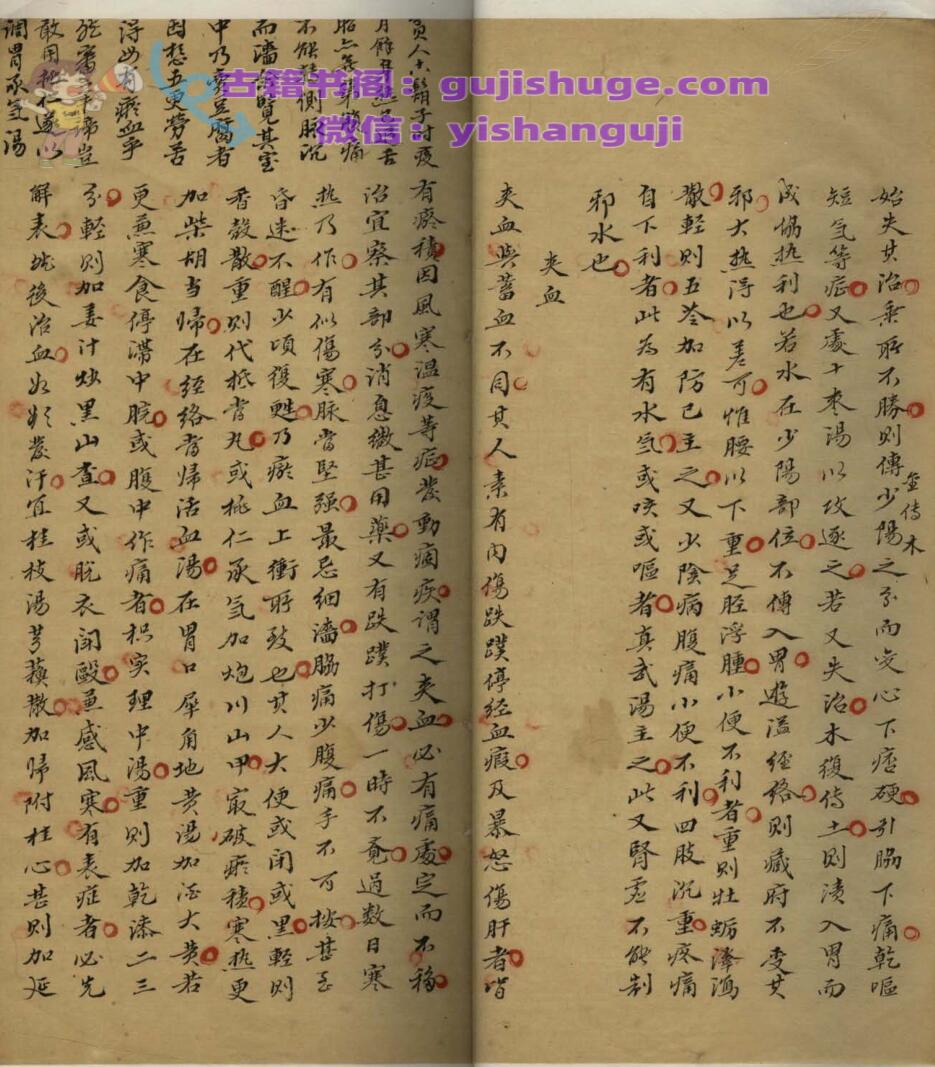 古籍书阁：gujishuge.com
微信：yishanguji
始失其治乗所不勝則傳少陽之分而受心下痞硬引脇下痛乾嘔
金侮木
短气等症又處十枣湯以攻逐之若又失治木復侮土則漬入胃而
成協热利也若水在少陽部位不傳入胃遊溢経络則藏府不受其
邪大热得以差可惟腰以下重足胫浮腫小便不利者重則牡蛎澤瀉
散輕則五苓加防己主之又少陰病腹痛小便不利四肢沉重疼痛
自下利者此為有水气或咳或嘔者真武湯主之此又腎虛不能制
邪水也
夾血
夾血與蓄血不同其人素有内傷跌蹼停経血瘕及暴怒傷肝者皆
有瘀積因風寒温疫等症發動痼疾謂之夾血必有痛處定而不移
治宜察其部分消息微甚用藥又有跌蹼打傷一時不覺過数日寒
热乃作有似傷寒脉當坚强最忌细濇脇痛少腹痛手不可按甚至
昏迷不醒少頃復甦乃瘀血上衝所致也其人大便或闭或黑輕則
香殼散重則代抵當丸或桃仁承气加炮川山甲最破瘀積寒热更
加柴胡当歸在経络當歸活血湯在胃口犀角地黄湯加酒大黄若
更兼寒食停滞中脘或腹中作痛者枳实理中湯重則加乾漆二三
分輕則加姜汁炒黑山查又或脱衣闘毆兼感風寒有表症者必先
解表然後治血如欲發汗宜桂枝湯芎蘓散加歸附桂心甚則加延
子时疫
不能轉側脉沉
而濇
中乃賣豆腐者
因想五更劳苦
得毋有瘀血乎
敢用桃仁遂以
調胃承气湯